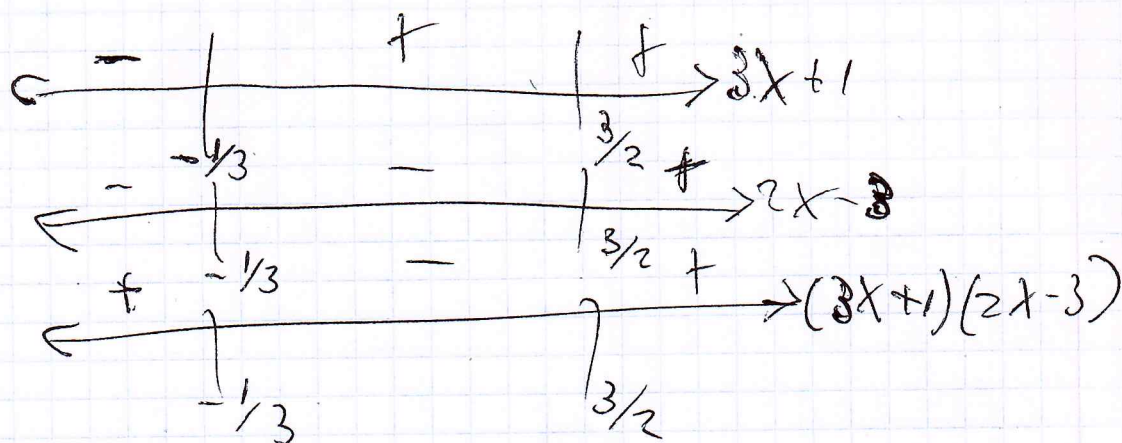 - + + 3x+1
-1/3 3/2
- - + 2x-3
-1/3 3/2
+ - + (3x+1)(2x-3)
-1/3 3/2